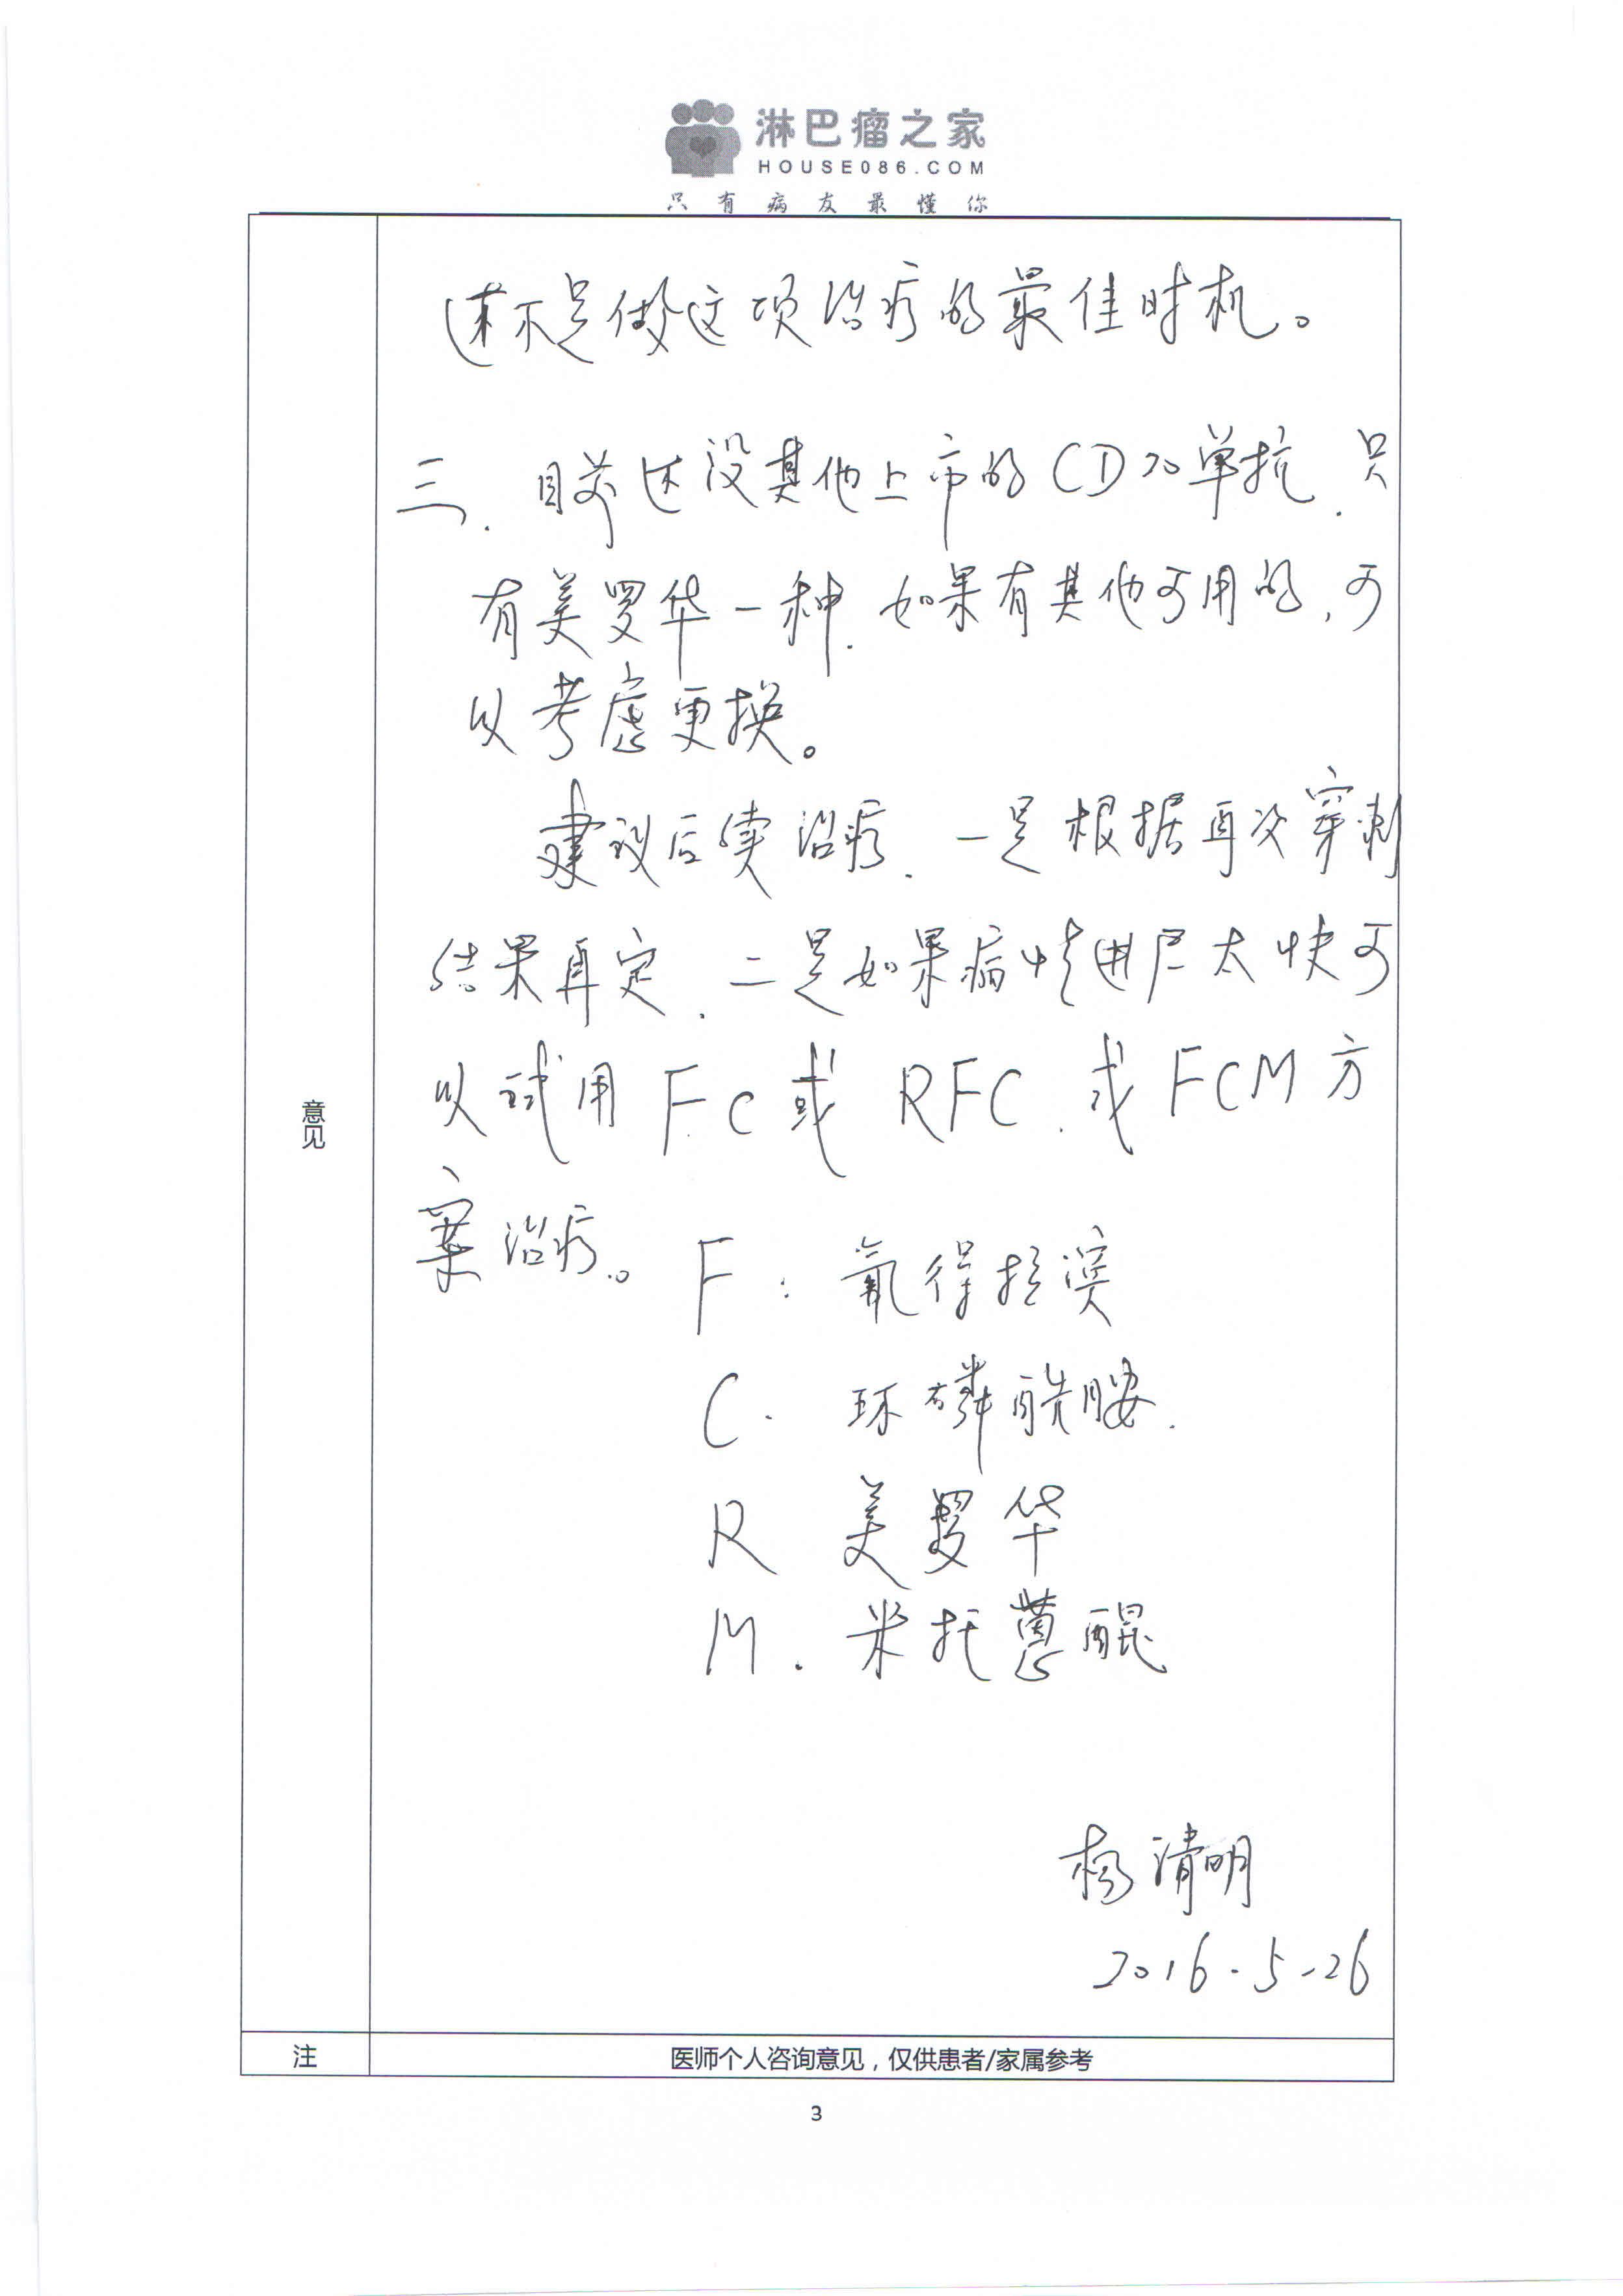 淋巴瘤之家
HOUSE086.COM
只有病友最懂你
还不是做这项治疗的最佳时机。
三、目前还没其他上市的CD20单抗,只
有美罗华一种,如果有其他可用的,可
以考虑更换。
建议后续治疗,一是根据再次穿刺
结果再定,二是如果病情进展太快可
以试用FC或RFC,或FCM方
案治疗。
F:氟得拉滨
C.环磷酰胺.
R 美罗华
M.米托蒽醌
意见
杨清明
2016-5-26
注
医师个人咨询意见,仅供患者/家属参考
3